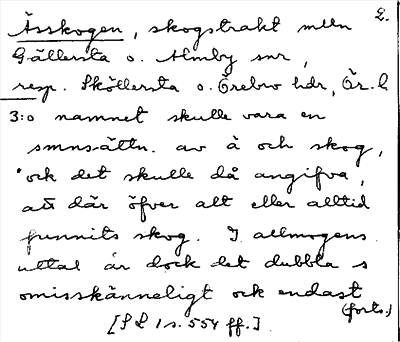 2.
Ässkogen, skogstrakt mlln
Gällersta o. Almby snr,
resp. Sköllersta o. Örebro hdr, Ör. l
3:o namnet skulle vara en
smnsättn. av å och skog,
och det skulle då angifva,
att där öfver alt eller alltid
funnits skog. I allmogens
uttal är dock det dubbla s
omisskänneligt och endast
(forts.)
[SL 1 s. 554 ff.]